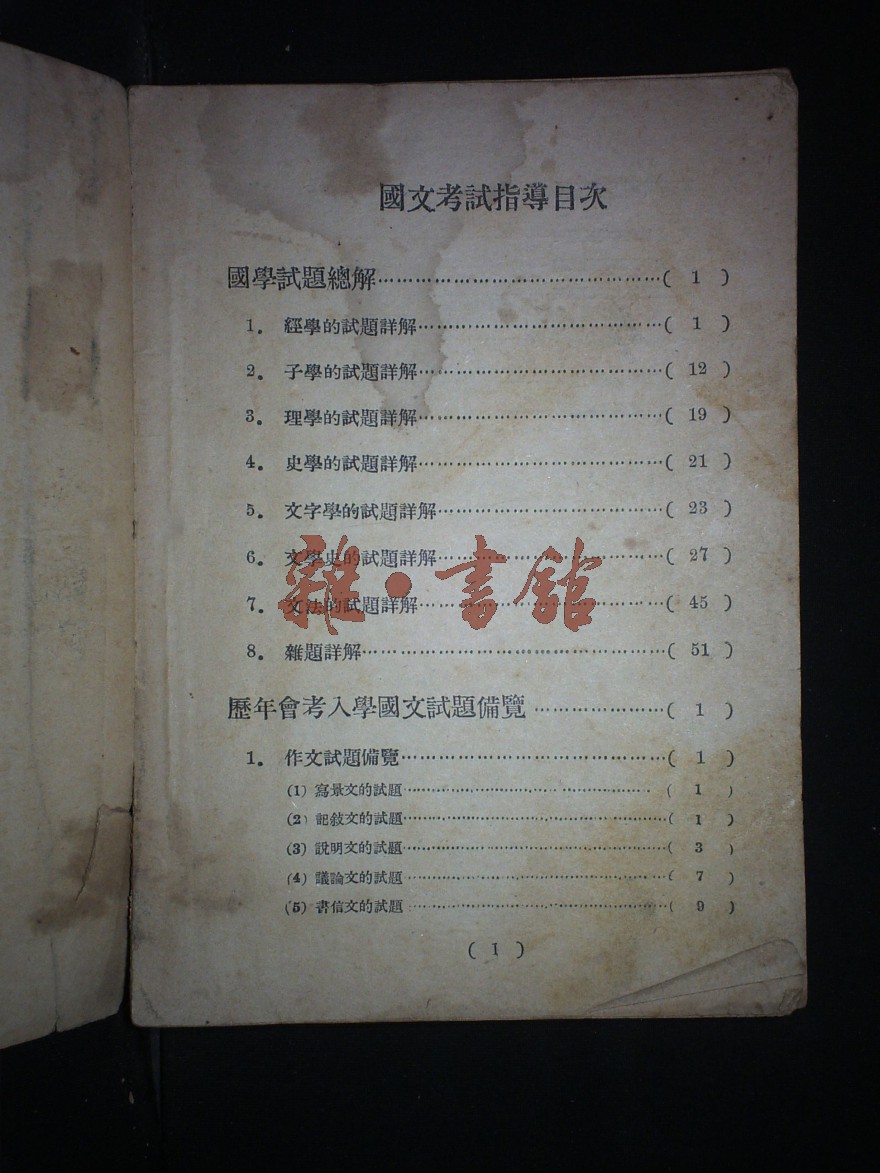 國文考試指導目次
國學試題總解……………………………………( 1 )
1. 經學的試題詳解………………………………( 1 )
2. 子學的試題詳解………………………………( 12 )
3. 理學的試題詳解………………………………( 19 )
4. 史學的試題詳解………………………………( 21 )
5. 文字學的試題詳解……………………………( 23 )
6. 文學史的試題詳解……………………………( 27 )
7. 文法的試題詳解………………………………( 45 )
8. 雜題詳解………………………………………( 51 )
雜·書館
歷年會考入學國文試題備覽…………………( 1 )
1. 作文試題備覽…………………………………( 1 )
(1) 寫景文的試題………………………………( 1 )
(2) 記敍文的試題………………………………( 1 )
(3) 說明文的試題………………………………( 3 )
(4) 議論文的試題………………………………( 7 )
(5) 書信文的試題………………………………( 9 )
( 1 )